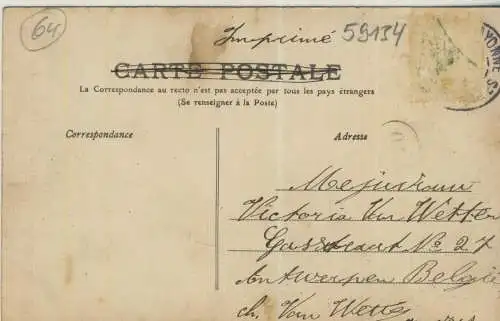 64
Imprimé 59134
CARTE POSTALE
La Correspondance au recto n'est pas acceptée par tous les pays étrangers
(Se renseigner à la Poste)
Correspondance
Adresse
Mejuvrouw
Victoria Van Wetter
No 27
Antwerpen Belgie
ch. Van Wette